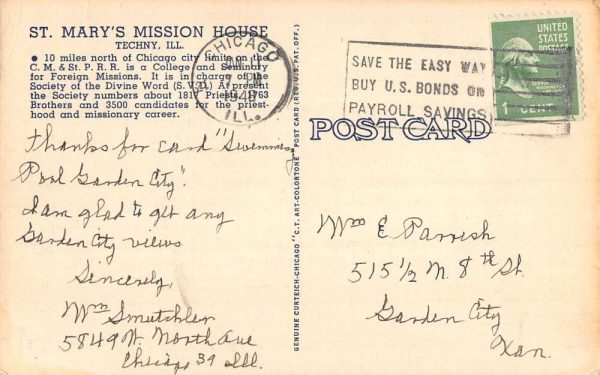 ST. MARY'S MISSION HOUSE
TECHNY, ILL.
● 10 miles north of Chicago city limits on the
C. M. & St. P. R. R. is a College and Seminary
for Foreign Missions. It is in charge of the
Society of the Divine Word (S. V. D.) At present
the Society numbers about 1817 Priests, 1763
Brothers and 3500 candidates for the priest-
hood and missionary career.
CHICAGO
PM
ILL.
SAVE THE EASY WAY
BUY U.S. BONDS ON
PAYROLL SAVINGS
UNITED
STATES
POSTAGE
1 CENT
POST CARD
GENUINE CURTEICH-CHICAGO "C.T. ART-COLORTONE" POST CARD (REG. U.S. PAT. OFF.)
Thanks for card "Swimming
Pool Garden City".
I am glad to get any
Garden City views
Sincerely,
Wm Smutchler
5849 W. North Ave
Chicago 39 Ill.
Wm E Parrish
515 1/2 N. 8th St.
Garden City
Kan.